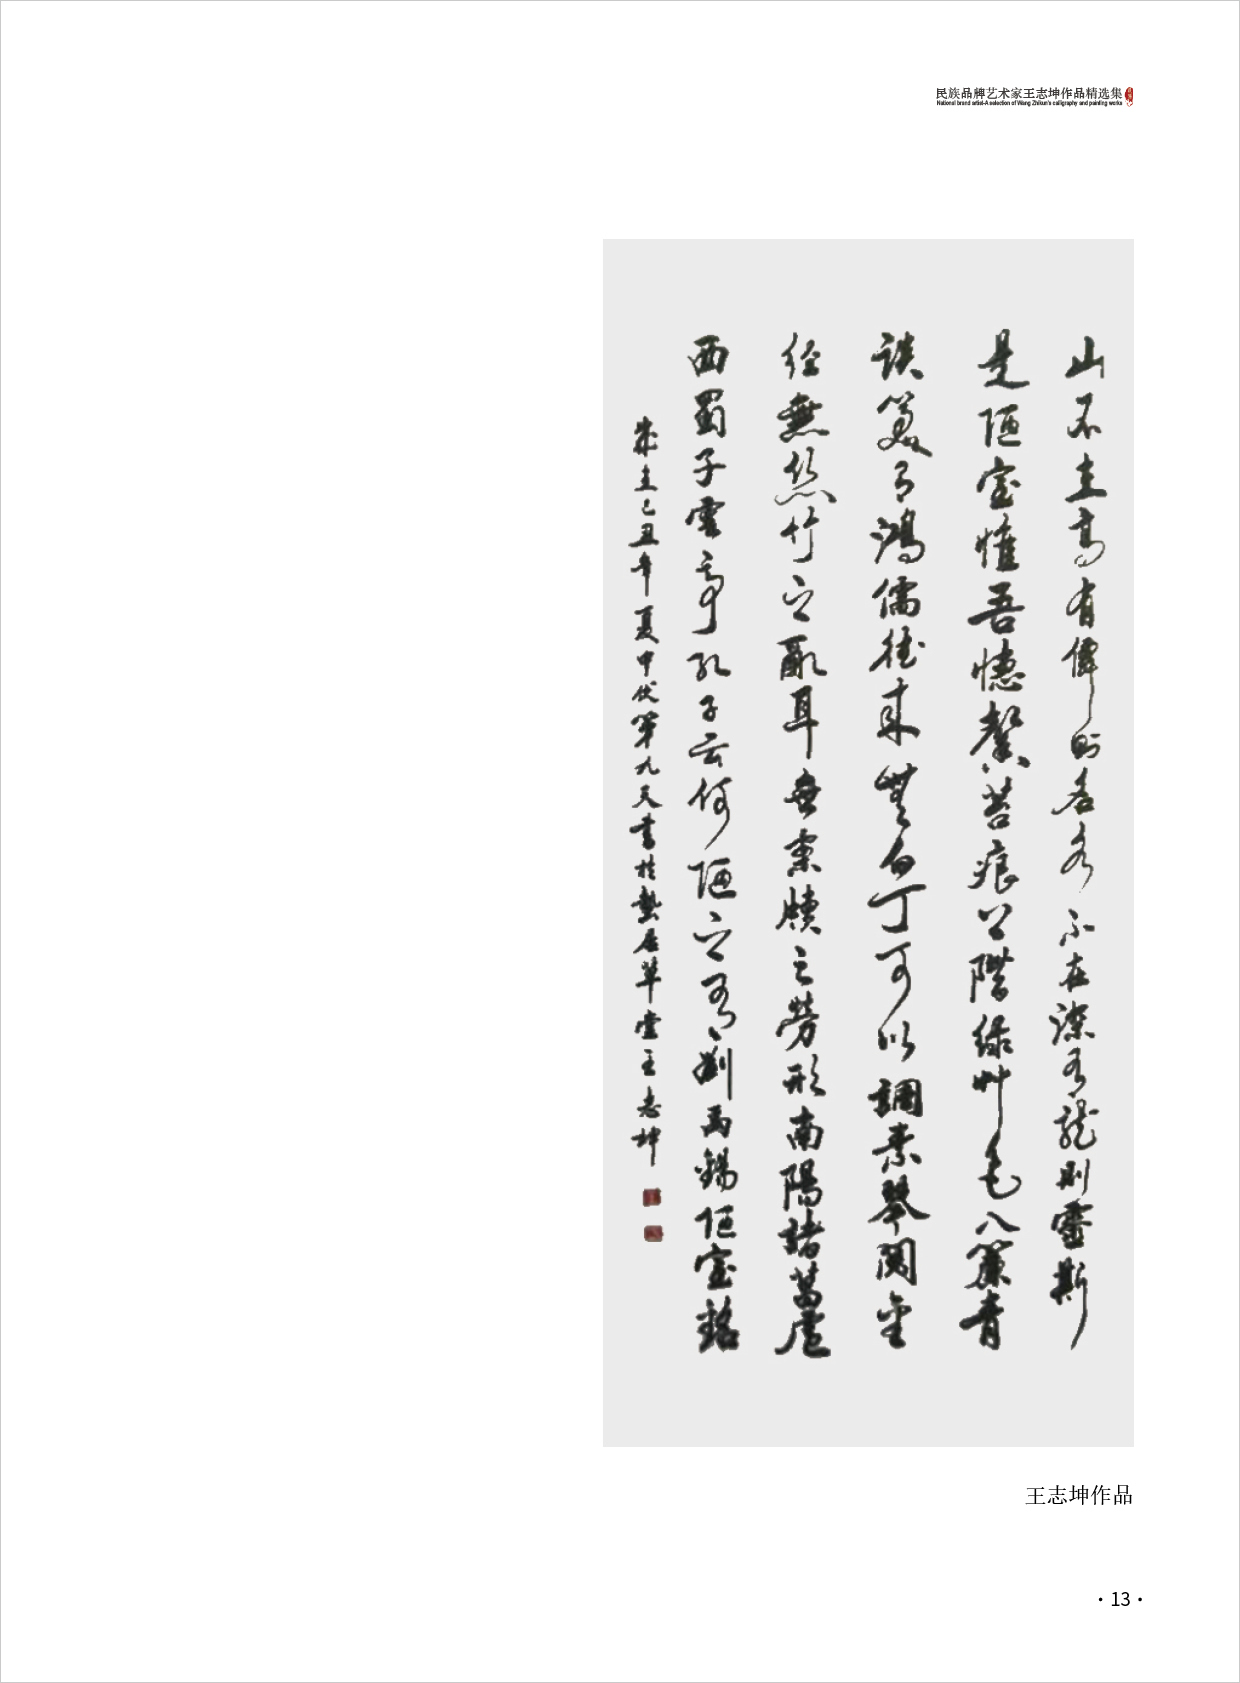 民族品牌艺术家王志坤作品精选集
National brand artist-A selection of Wang Zhikun's calligraphy and painting works
山不在高有僊則名水不在深有龍則靈斯
是陋室惟吾德馨苔痕上階綠艸色入簾青
談笑有鴻儒往來無白丁可以調素琴閱金
經無絲竹之亂耳無案牘之勞形南陽諸葛廬
西蜀子雲亭孔子云何陋之有劉禹錫陋室銘
歲在己丑年夏中伏第九天書於藝居草堂王志坤
王志坤作品
· 13 ·